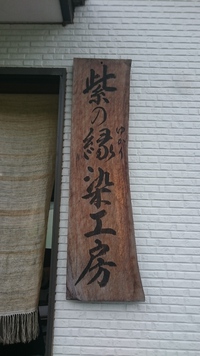 紫の縁染工房
ゆかり